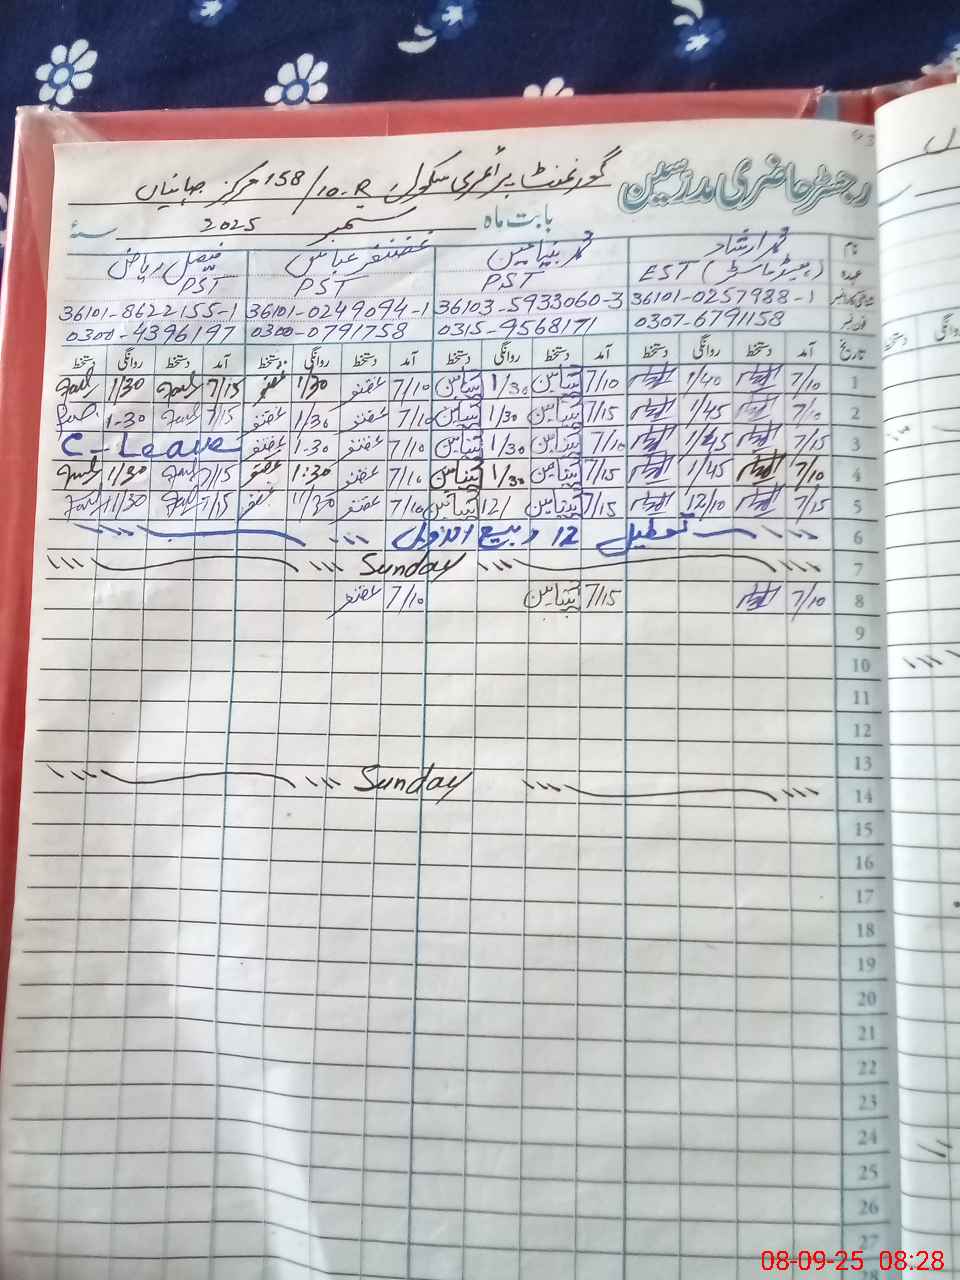 رجسٹر حاضری مدرسین گورنمنٹ پرائمری سکول 158/10-R مرکز جہانیاں
بابت ماہ ستمبر 2025 سنہ
نام محمد ارشاد محمد بنیامین غضنفر عباس فیصل ریاض
عہدہ EST (ہیڈ ماسٹر) PST PST PST
36101-0257988-1 36103-5933060-3 36101-0249094-1 36101-8622155-1
فون نمبر 0307-6791158 0315-9568171 0300-0791758 0300-4396197
تاریخ آمد دستخط روانگی دستخط آمد دستخط روانگی دستخط آمد دستخط روانگی دستخط آمد دستخط روانگی دستخط
1 7/10 1/40 7/10 بنیامین 1/30 بنیامین 7/10 غضنفر 1/30 غضنفر 7/15 1/30
2 7/10 1/45 7/15 بنیامین 1/30 بنیامین 7/10 غضنفر 1/30 غضنفر 7/15 1-30
3 7/15 1/45 7/10 بنیامین 1/30 بنیامین 7/10 غضنفر 1-30 غضنفر C-Leave
4 7/10 1/45 7/15 بنیامین 1/30 بنیامین 7/10 غضنفر 1:30 غضنفر 7/15 1/30
5 7/15 12/10 7/15 بنیامین 12/ بنیامین 7/10 غضنفر 11/30 غضنفر 7/15 11/30
6 تعطیل 12 ربیع الاول
7 Sunday
8 7/10 7/15 بنیامین 7/10 غضنفر
9
10
11
12
13
14 Sunday
15
16
17
18
19
20
21
22
23
24
25
26
27
28
08-09-25 08:28